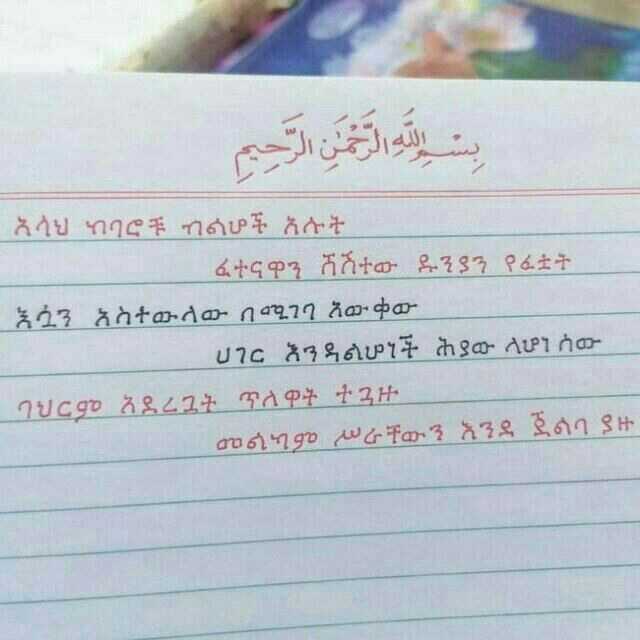 بِسْمِ اللَّهِ الرَّحْمَٰنِ الرَّحِيمِ
አላህ ከባሮቹ ብልሆች አሉት
ፈተናዋን ሸሽተው ዱንያን የፈቷት
እሷን አስተውለው በሚገባ አውቀው
ሀገር እንዳልሆነች ሕያው ለሆነ ሰው
ባህርም አደረጓት ጥለዋት ተጓዙ
መልካም ሥራቸውን እንደ ጀልባ ያዙ